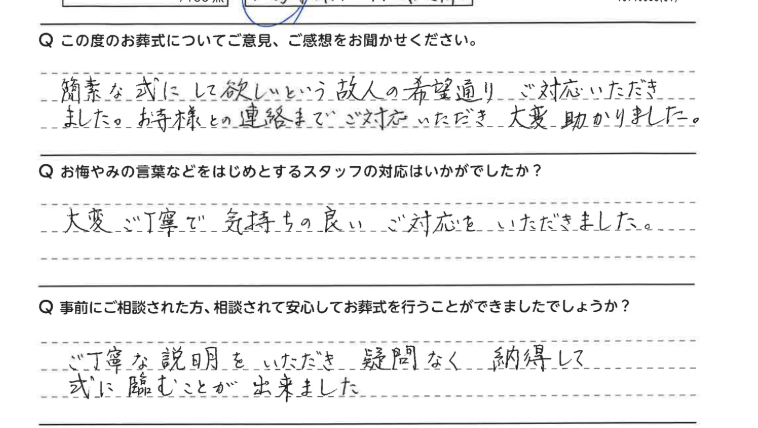 Q この度のお葬式についてご意見、ご感想をお聞かせください。
簡素な式にして欲しいという故人の希望通り ご対応いただき
ました。お寺様との連絡までご対応いただき 大変 助かりました。
Q お悔やみの言葉などをはじめとするスタッフの対応はいかがでしたか？
大変 ご丁寧で 気持ちの良い ご対応を いただきました。
Q 事前にご相談された方、相談されて安心してお葬式を行うことができましたでしょうか？
ご丁寧な説明を いただき 疑問なく 納得して
式に臨むことが出来ました